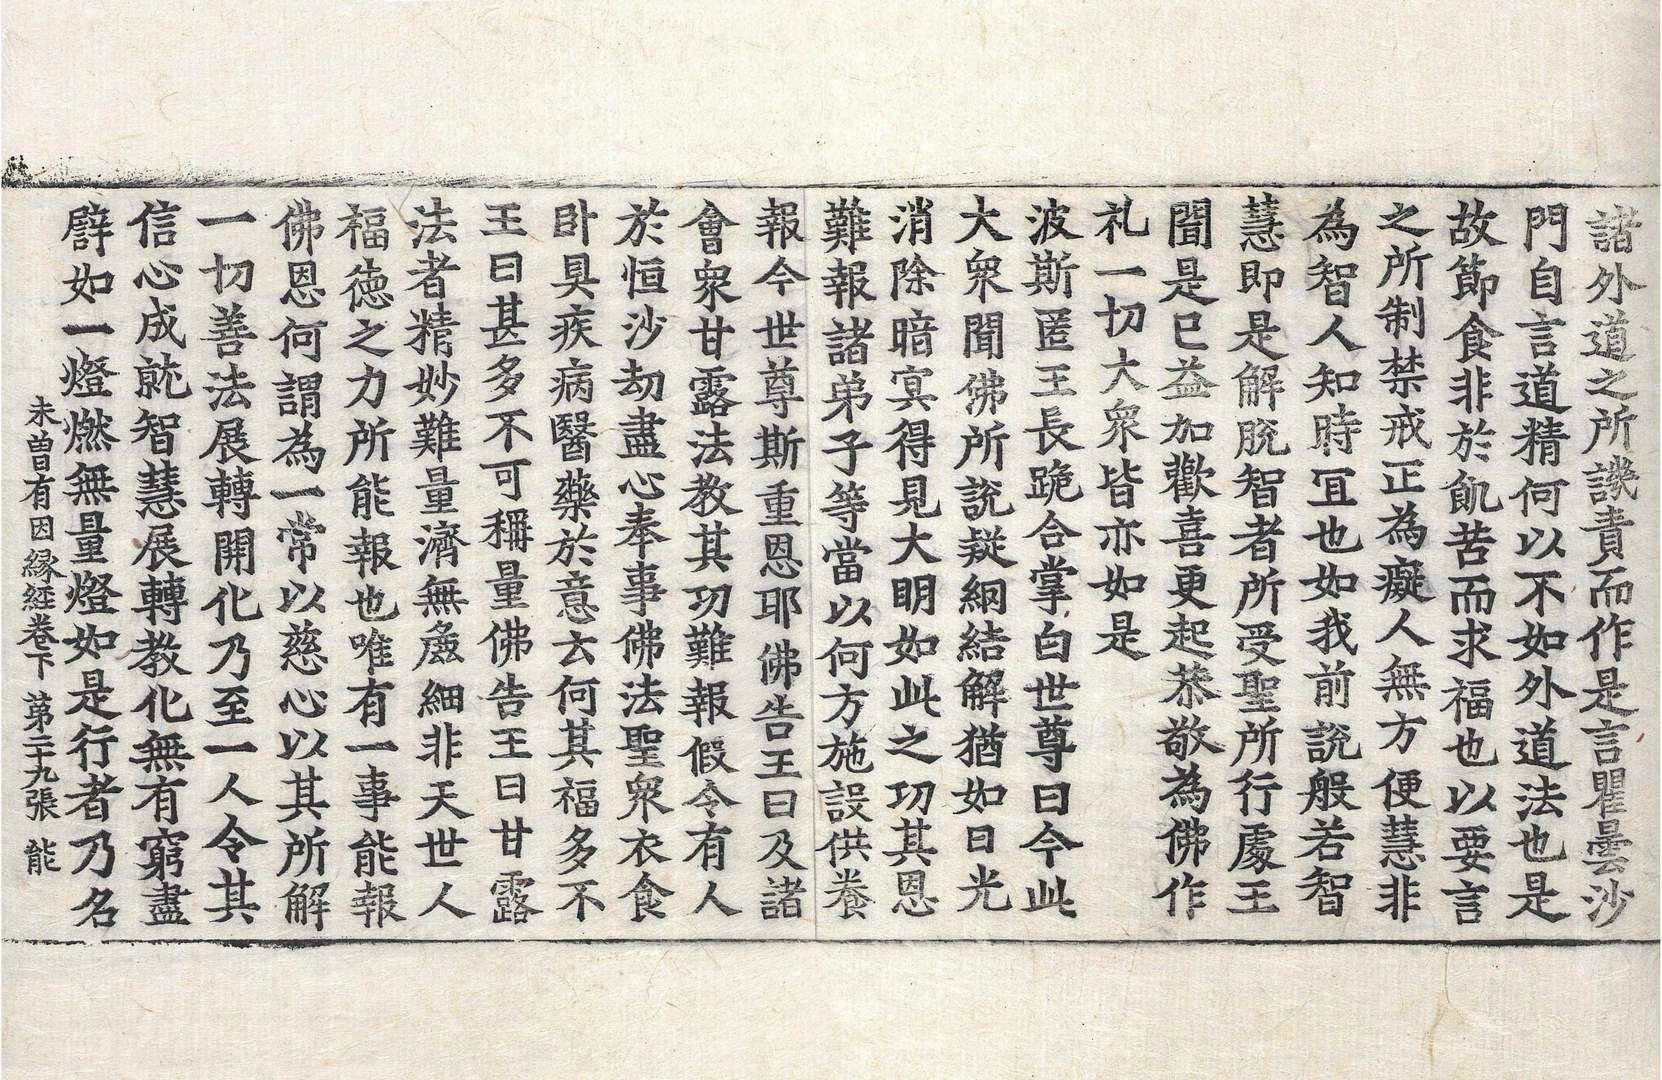 諸外道之所譏責而作是言瞿曇沙
門自言道精何以不如外道法也是
故節食非於飢苦而求福也以要言
之所制禁戒正為癡人無方便慧非
為智人知時冝也如我前說般若智
慧即是解脫智者所受聖所行處王
聞是已益加歡喜更起恭敬為佛作
礼一切大衆皆亦如是
波斯匿王長跪合掌白世尊曰今此
大衆聞佛所說疑網結解猶如日光
消除暗冥得見大明如此之功其恩
難報諸弟子等當以何方施設供養
報今世尊斯重恩耶佛告王曰及諸
會衆甘露法教其功難報假令有人
於恒沙劫盡心奉事佛法聖衆衣食
卧具疾病醫藥於意云何其福多不
王曰甚多不可稱量佛告王曰甘露
法者精妙難量濟無麁細非天世人
福德之力所能報也唯有一事能報
佛恩何謂為一常以慈心以其所解
一切善法展轉開化乃至一人令其
信心成就智慧展轉教化無有窮盡
譬如一燈燃無量燈如是行者乃名
未曾有因縁經卷下 第二十九張 能